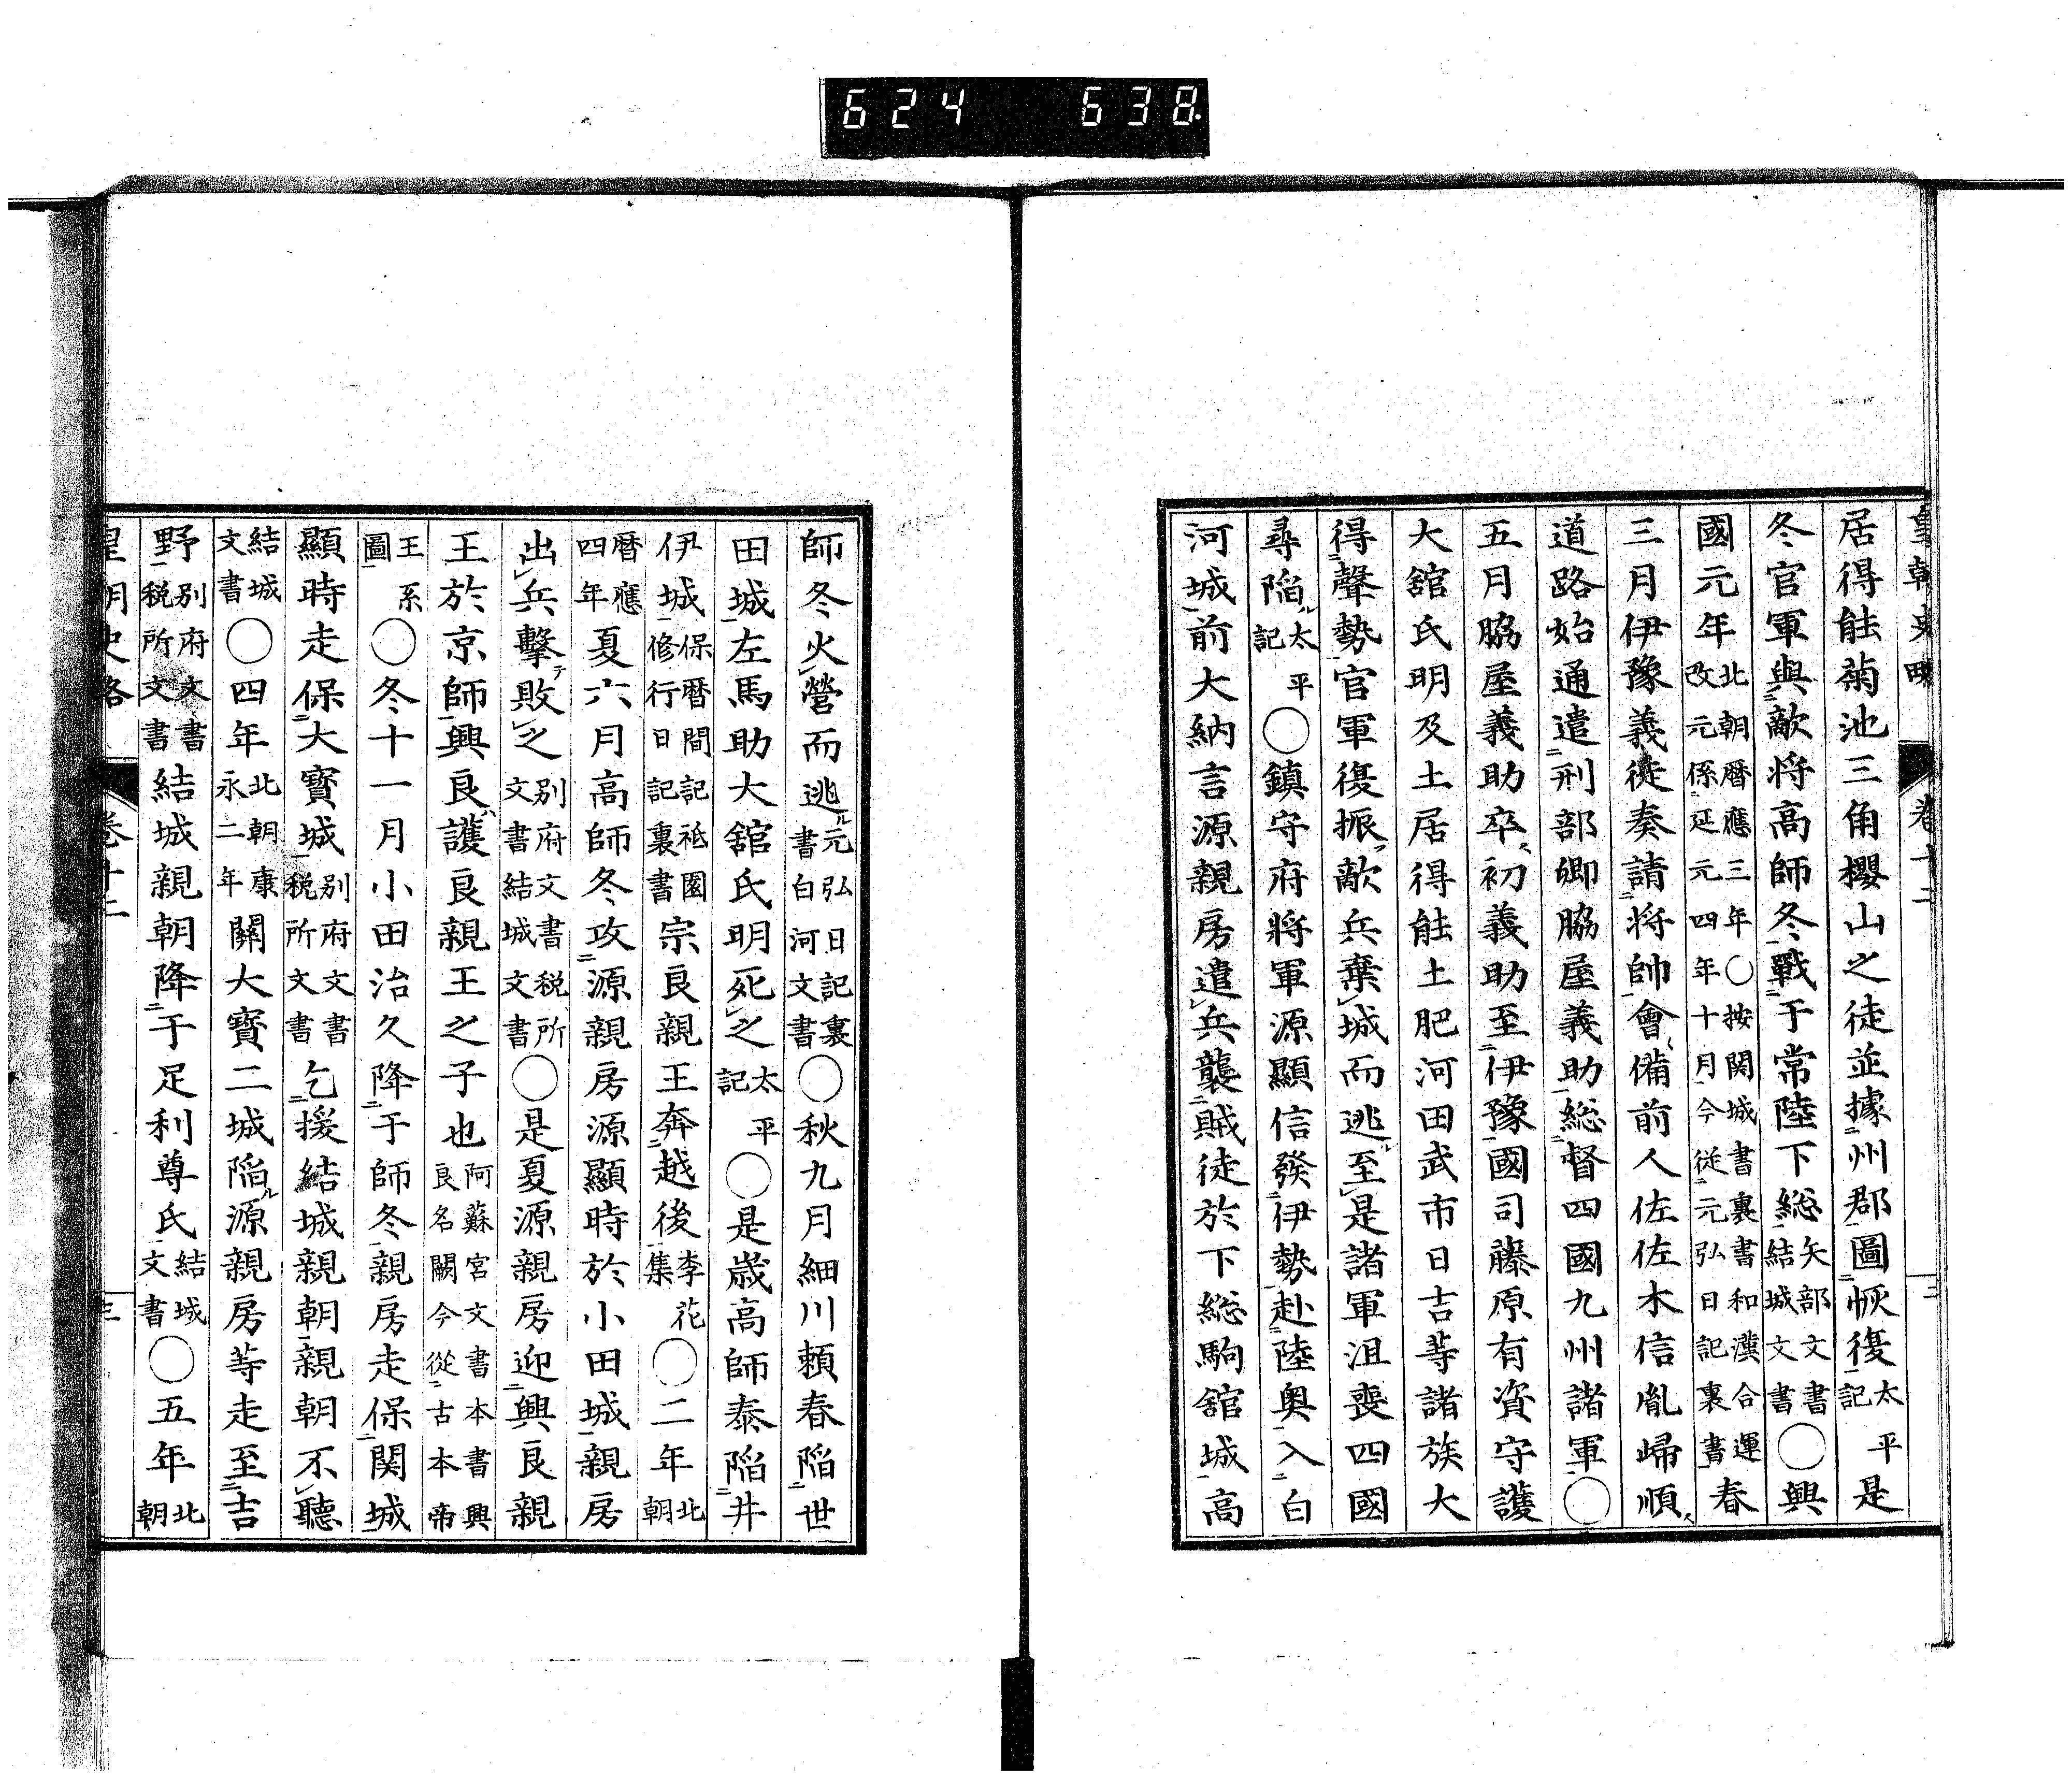 624 638
皇朝史略 卷十二 三
居得能菊池三角櫻山之徒並據州郡圖恢復太平記是
冬官軍與敵将高師冬戰于常陸下総矢部文書結城文書〇興
國元年北朝暦應三年〇按関城書裏書和漢合運改元係延元四年十月今從元弘日記裏書春
三月伊豫義徒奏請将帥會備前人佐佐木信胤帰順
道路始通遣刑部卿脇屋義助総督四國九州諸軍〇
五月脇屋義助卒初義助至伊豫國司藤原有資守護
大舘氏明及土居得能土肥河田武市日吉等諸族大
得聲勢官軍復振敵兵棄城而逃至是諸軍沮喪四國
尋陥太平記〇鎮守府将軍源顯信發伊勢赴陸奥入白
河城前大納言源親房遣兵襲賊徒於下総駒舘城高
師冬火營而逃元弘日記裏書白河文書〇秋九月細川頼春陥世
田城左馬助大舘氏明死之太平記〇是歳高師泰陥井
伊城保暦間記祗園修行日記裏書宗良親王奔越後李花集〇二年北朝
暦應四年夏六月高師冬攻源親房源顯時於小田城親房
出兵擊敗之別府文書税所文書結城文書〇是夏源親房迎興良親
王於京師興良護良親王之子也阿蘇宮文書本書興良名闕今從古本帝
王系圖〇冬十一月小田治久降于師冬親房走保関城
顯時走保大寳城別府文書税所文書乞援結城親朝親朝不聽
結城文書〇四年北朝康永二年關大寳二城陥源親房等走至吉
野別府文書税所文書結城親朝降于足利尊氏結城文書〇五年北朝
皇朝史略 卷十二 三